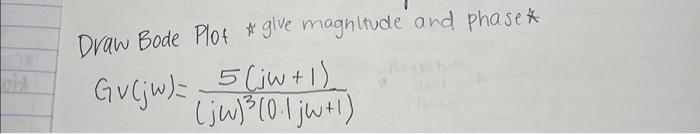 Draw Bode Plot * give magnitude and phase *
Gv(jw) = 5(jw+1) / (jw)³(0.1jw+1)